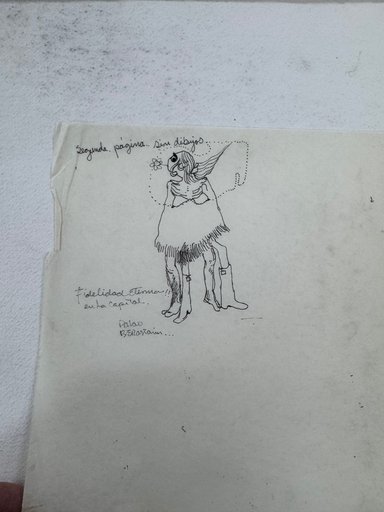 Segunda página.. sin dibujos..
Fidelidad Eterna..
en la Capital..